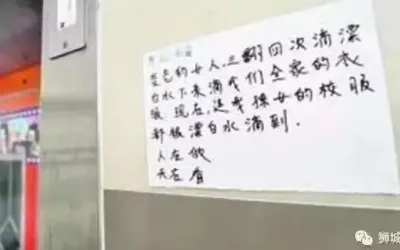 色的女人三翻四次滴漂
白水下来滴我们全家的衣
服.现在,连我孫女的校服
都被漂白水滴到.
人在做
天在看
狮城